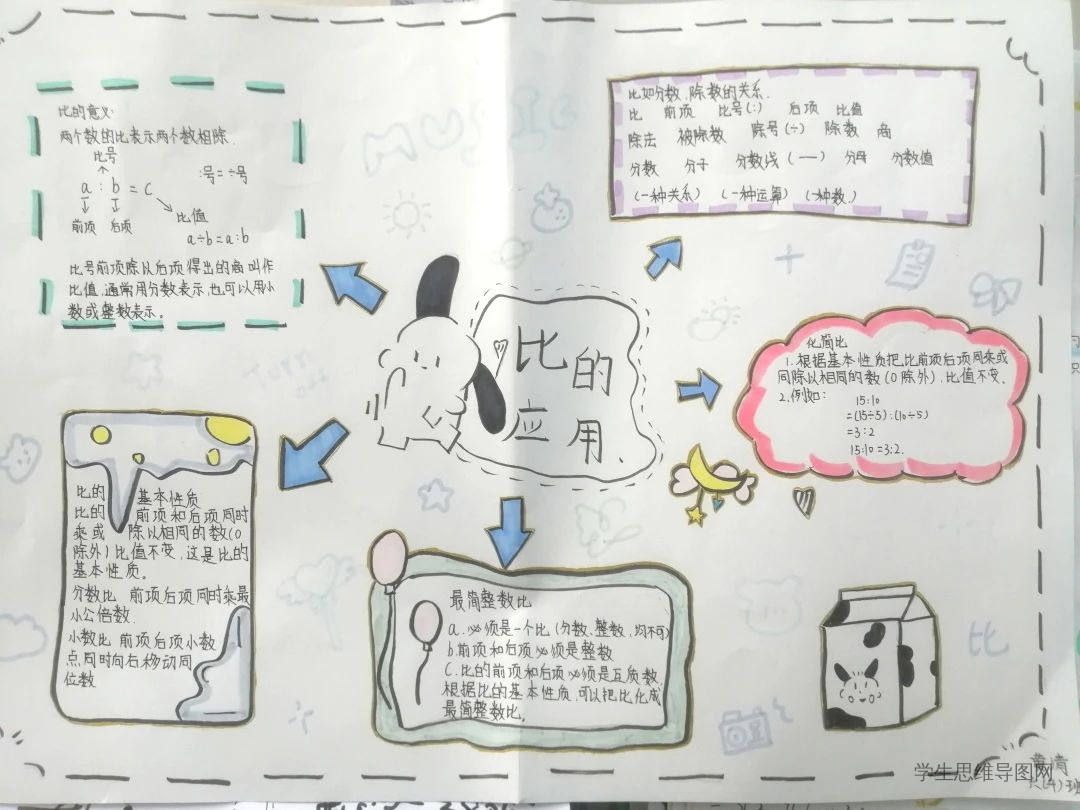 比的意义:
两个数的比表示两个数相除.
比号
a : b = c
:号=÷号
前项 后项
比值
a÷b=a:b
比号前项除以后项得出的商叫作
比值,通常用分数表示,也可以用小
数或整数表示。
比如分数、除数的关系.
比 前项 比号(:) 后项 比值
除法 被除数 除号(÷) 除数 商
分数 分子 分数线(—) 分母 分数值
(一种关系) (一种运算) (一种数.)
比的
应用.
化简比
1.根据基本性质把比前项后项同乘或
同除以相同的数(0除外),比值不变.
2.例如:
15:10
=(15÷5):(10÷5)
=3:2
15:10=3:2.
比的 基本性质
比的 前项和后项同时
乘或 除以相同的数(0
除外)比值不变,这是比的
基本性质。
分数比 前项后项同时乘最
小公倍数.
小数比 前项后项小数
点同时向右移动同
位数
最简整数比
a.必须是一个比(分数、整数,均不可)
b.前项和后项必须是整数
C.比的前项和后项必须是互质数.
根据比的基本性质,可以把比化成
最简整数比。
比
学生思维导图网